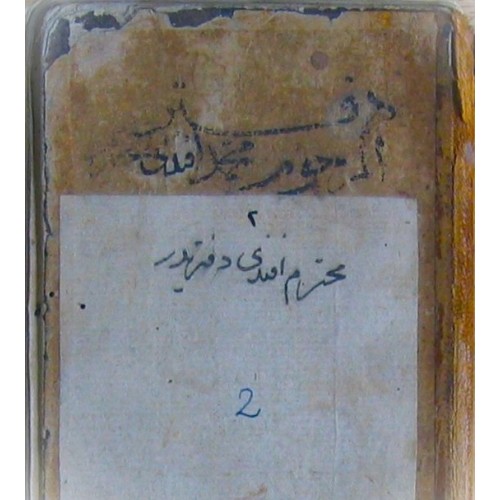 دفتر
المرحوم محمد افندی
٢
محترم افندی دفتریدر
2